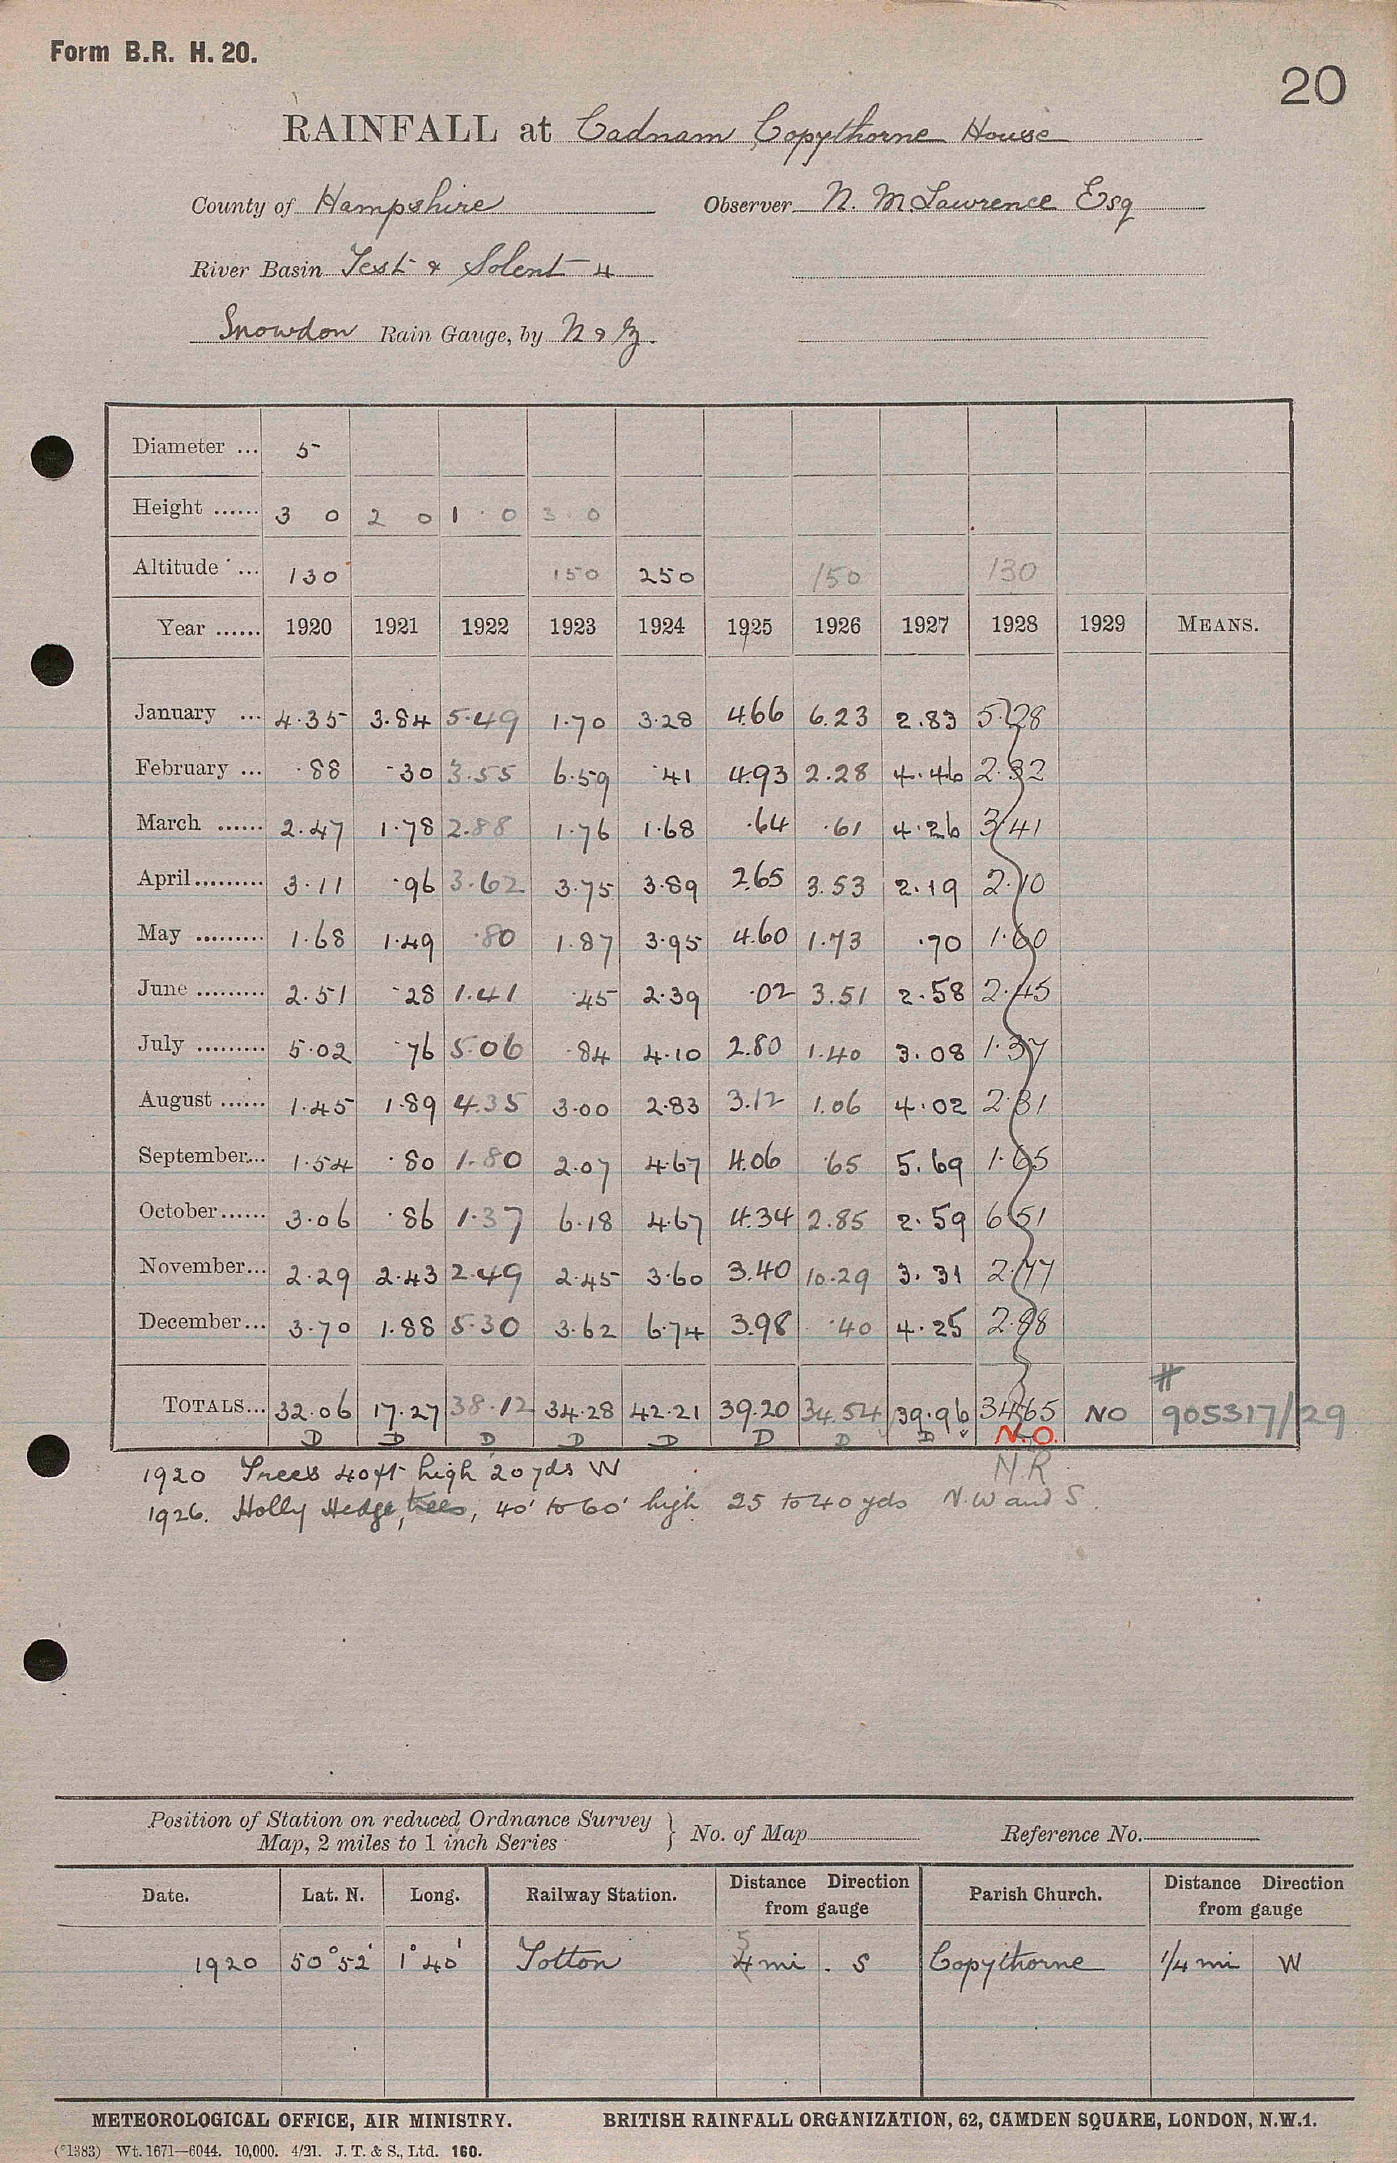 Form B.R. H. 20.
20
RAINFALL at Cadnam Copythorne House
County of Hampshire Observer N. McLawrence Esq
River Basin Test & Solent 4
Snowdon Rain Gauge, by N & Z.
Diameter ... 5
Height ...... 3 0 2 0 1 . 0 3 . 0
Altitude ... 130 150 250 150 130
Year ...... 1920 1921 1922 1923 1924 1925 1926 1927 1928 1929 MEANS.
January ... 4.35 3.84 5.49 1.70 3.28 4.66 6.23 2.83 5.28
February ... .88 .30 3.55 6.59 .41 4.93 2.28 4.46 2.32
March ...... 2.47 1.78 2.88 1.76 1.68 .64 .61 4.26 3.41
April......... 3.11 .96 3.62 3.75 3.89 2.65 3.53 2.19 2.10
May ......... 1.68 1.49 .80 1.87 3.95 4.60 1.73 .70 1.60
June ......... 2.51 .28 1.41 .45 2.39 .02 3.51 2.58 2.45
July ......... 5.02 .76 5.06 .84 4.10 2.80 1.40 3.08 1.37
August ...... 1.45 1.89 4.35 3.00 2.83 3.12 1.06 4.02 2.31
September... 1.54 .80 1.80 2.07 4.67 4.06 .65 5.69 1.65
October...... 3.06 .86 1.37 6.18 4.67 4.34 2.85 2.59 6.51
November... 2.29 2.43 2.49 2.45 3.60 3.40 10.29 3.31 2.77
December... 3.70 1.88 5.30 3.62 6.74 3.98 .40 4.25 2.88
TOTALS... 32.06 17.27 38.12 34.28 42.21 39.20 34.54 39.96 34.65 NO # 905317/29
D D D D D D D D N.O.
1920 Trees 40ft high 20yds W N.R
1926. Holly Hedge, trees, 40' to 60' high 25 to 40 yds N.W and S.
Position of Station on reduced Ordnance Survey
Map, 2 miles to 1 inch Series } No. of Map Reference No.
Date. Lat. N. Long. Railway Station. Distance Direction from gauge Parish Church. Distance Direction from gauge
5
1920 50°52' 1°40' Totton 4 mi . S Copythorne 1/4 mi W
METEOROLOGICAL OFFICE, AIR MINISTRY. BRITISH RAINFALL ORGANIZATION, 62, CAMDEN SQUARE, LONDON, N.W.1.
(*1383) Wt. 1671—6044. 10,000. 4/21. J. T. & S., Ltd. 160.